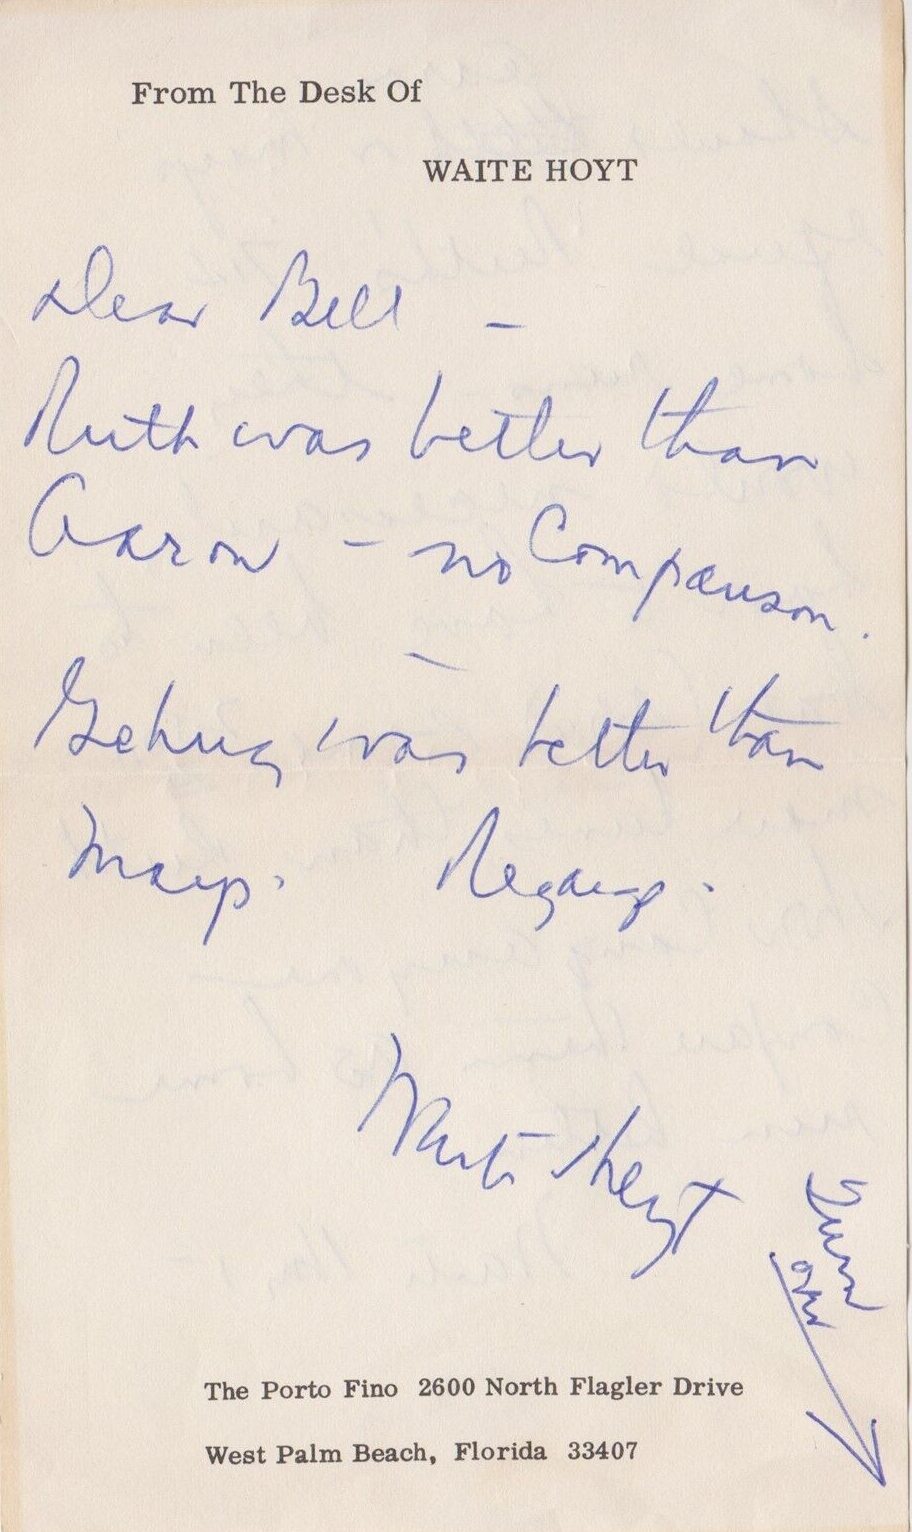 From The Desk Of
WAITE HOYT
Dear Bill —
Ruth was better than
Aaron – no Comparison.
Gehrig was better than
Mays. Regards.
Waite Hoyt
Turn
over
The Porto Fino 2600 North Flagler Drive
West Palm Beach, Florida 33407